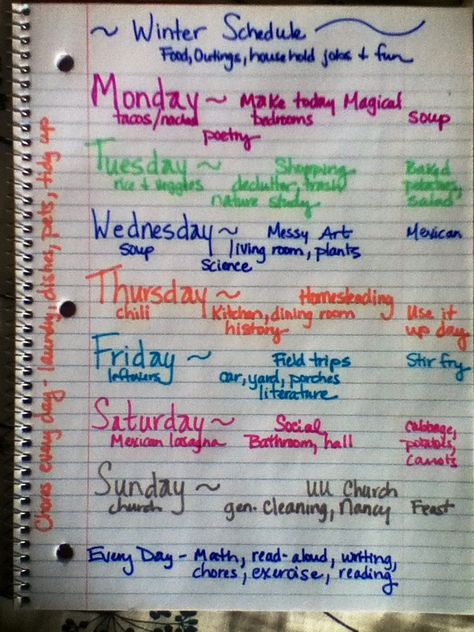 ~ Winter Schedule
Food, Outings, household jobs + fun
Monday ~ Make today Magical
tacos/nachos bedrooms soup
poetry
Tuesday ~ Shopping Baked
rice + veggies declutter, trash potatoes,
nature study salad
Wednesday ~ Messy Art Mexican
soup living room, plants
science
Thursday ~ Homesteading
chili Kitchen, dining room Use it
history up day
Friday ~ Field trips Stir fry
leftovers car, yard, porches
literature
Saturday ~ Social Cabbage,
Mexican lasagna Bathroom, hall potatoes,
carrots
Sunday ~ UU Church
church gen. Cleaning, Nancy Feast
Every Day - Math, read-aloud, writing,
chores, exercise, reading
Chores every day - laundry, dishes, pets, tidy up